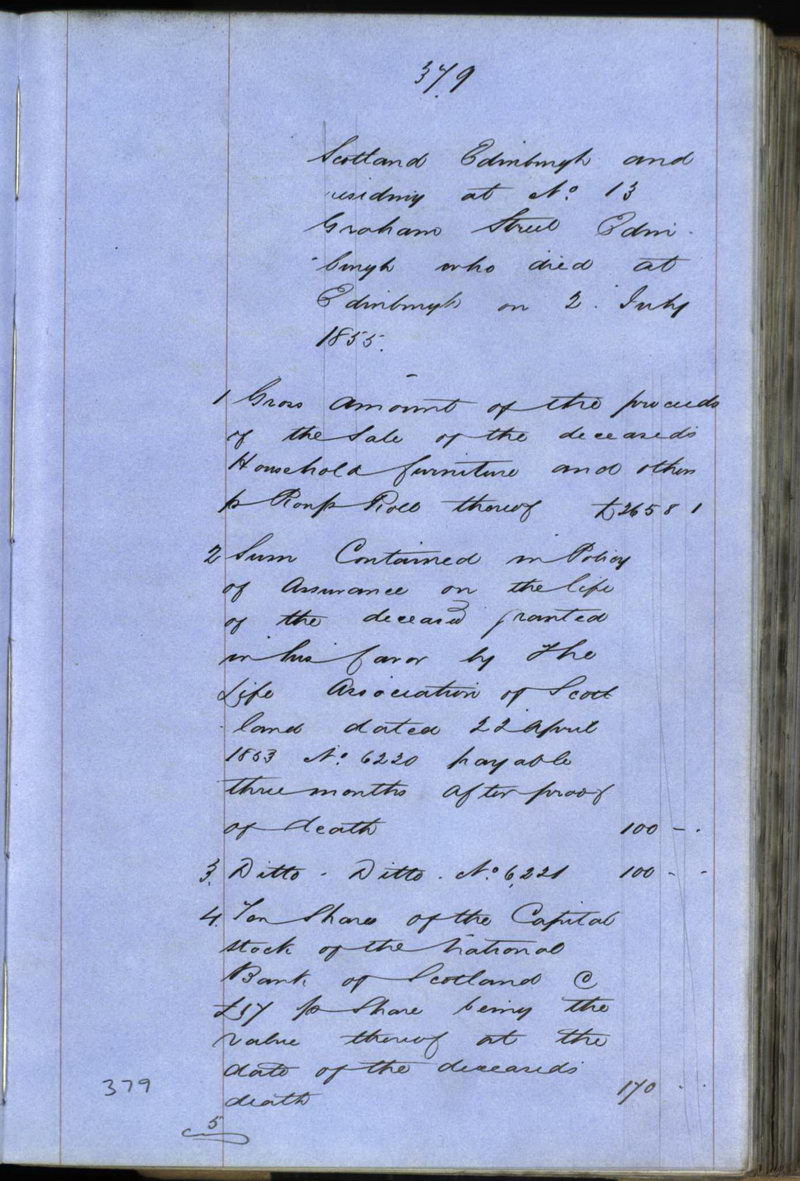 379
Scotland Edinburgh and
residing at No. 13
Graham Street Edin-
-burgh who died at
Edinburgh on 2. July
1855.
1 Gross amount of the proceeds
of the Sale of the deceaseds
Household furniture and others
p Roup Roll thereof £265 8 1
2 Sum Contained in Policy
of Assurance on the life
of the deceased granted
in his favor by The
Life Association of Scot
-land dated 22 April
1853 No. 6220 payable
three months after proof
of death 100 - .
3. Ditto - Ditto - No. 6,221 100 - -
4. Ten Shares of the Capital
stock of the National
Bank of Scotland @
£17 p Share being the
value thereof at the
date of the deceaseds
death 170 . .
379
5